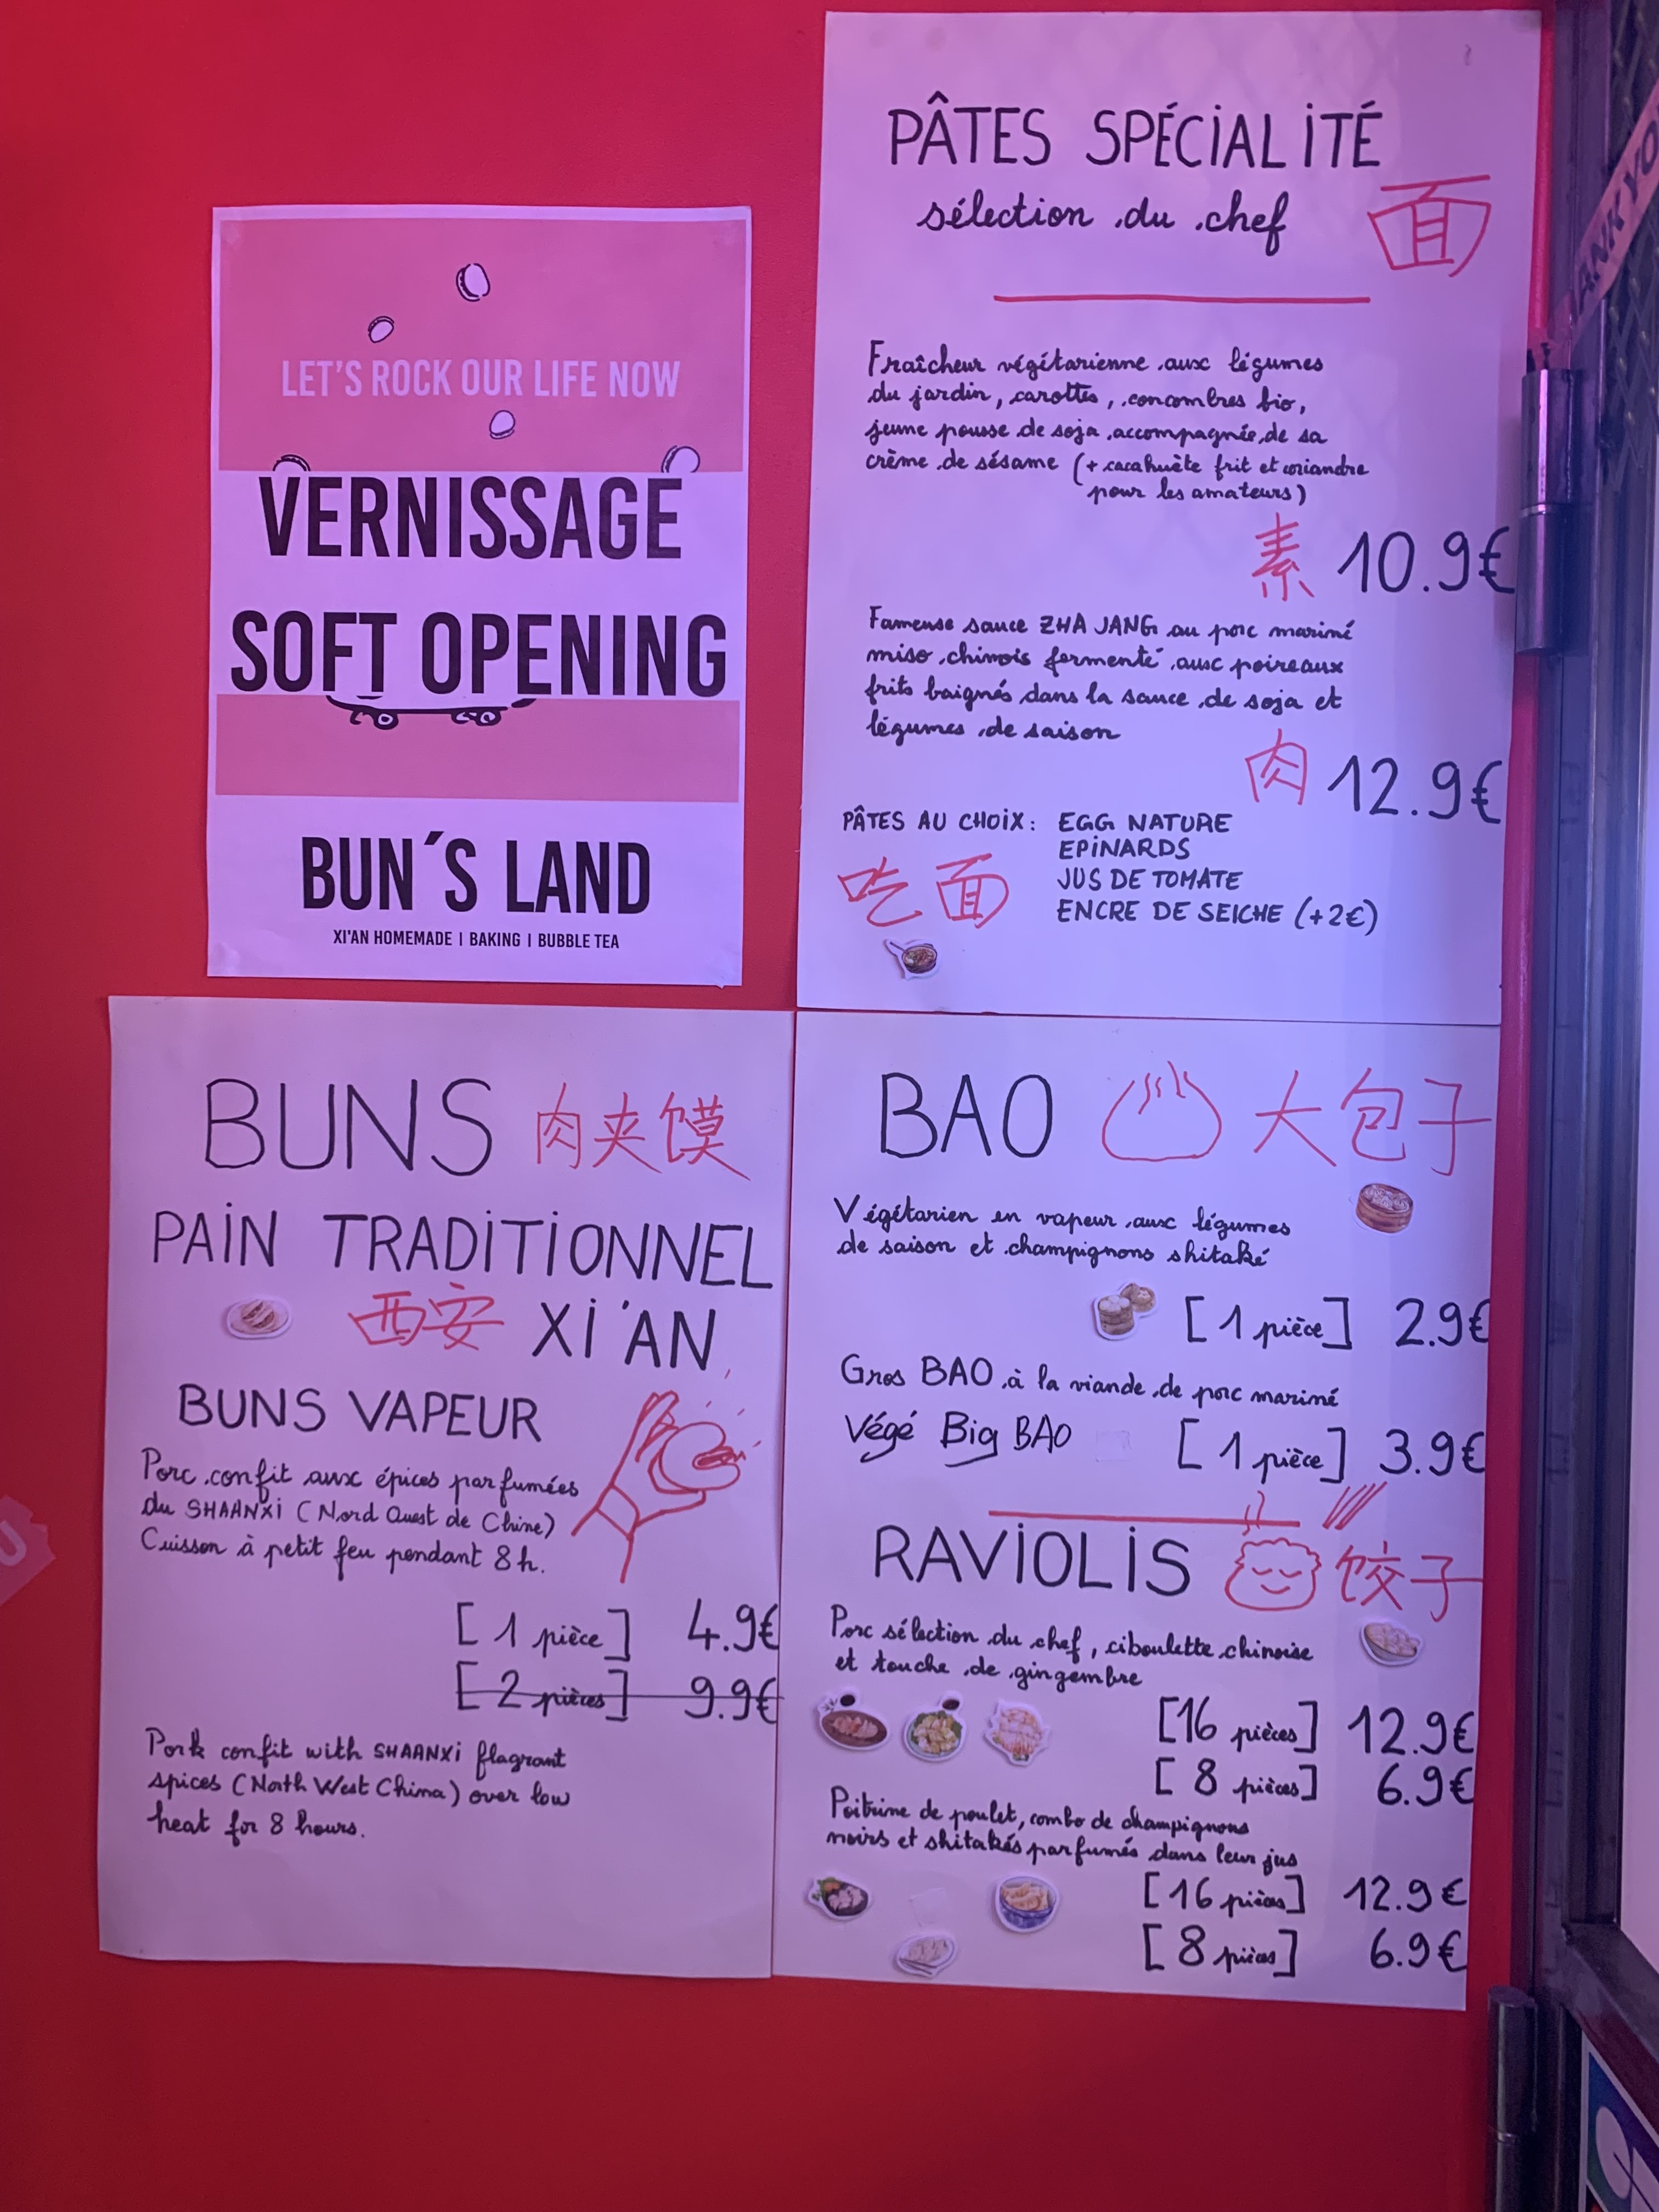 LET'S ROCK OUR LIFE NOW
VERNISSAGE
SOFT OPENING
BUN´S LAND
XI'AN HOMEMADE | BAKING | BUBBLE TEA
PÂTES SPÉCIALITÉ
sélection du chef 面
Fraîcheur végétarienne aux légumes
du jardin, carottes, concombres bio,
jeune pousse de soja accompagnée de sa
crème de sésame (+ cacahuète frit et coriandre
pour les amateurs)
素 10.9€
Fameuse sauce ZHA JANG au porc mariné
miso chinois fermenté aux poireaux
frits baignés dans la sauce de soja et
légumes de saison
肉 12.9€
PÂTES AU CHOIX: EGG NATURE
EPINARDS
吃面 JUS DE TOMATE
ENCRE DE SEICHE (+2€)
BUNS 肉夹馍
PAIN TRADITIONNEL
西安 XI'AN
BUNS VAPEUR
Porc confit aux épices parfumées
du SHAANXI (Nord Ouest de Chine)
Cuisson à petit feu pendant 8h.
[1 pièce] 4.9€
[2 pièces] 9.9€
Pork confit with SHAANXI flagrant
spices (North West China) over low
heat for 8 hours.
BAO 大包子
Végétarien en vapeur aux légumes
de saison et champignons shitaké
[1 pièce] 2.9€
Gros BAO à la viande de porc mariné
Végé Big BAO [1 pièce] 3.9€
RAVIOLIS 饺子
Porc sélection du chef, ciboulette chinoise
et touche de gingembre
[16 pièces] 12.9€
[8 pièces] 6.9€
Poitrine de poulet, combo de champignons
noirs et shitakés parfumés dans leur jus
[16 pièces] 12.9€
[8 pièces] 6.9€